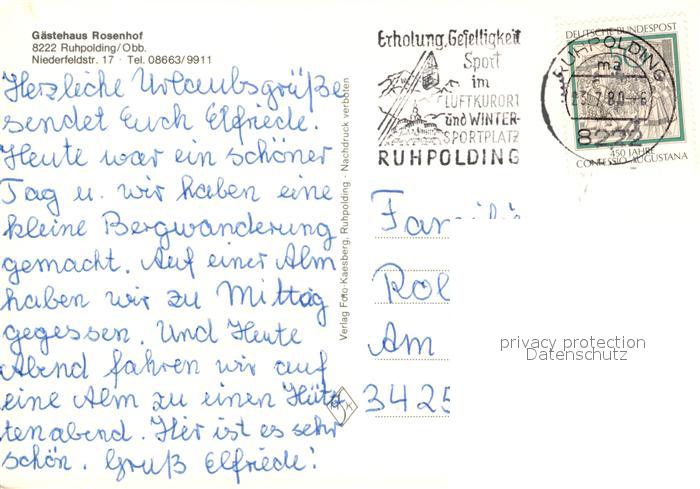 Gästehaus Rosenhof
8222 Ruhpolding/Obb.
Niederfeldstr. 17 · Tel. 08663/9911
Herzliche Urlaubsgrüße
sendet Euch Elfriede.
Heute war ein schöner
Tag u. wir haben eine
kleine Bergwanderung
gemacht. Auf einer Alm
haben wir zu Mittag
gegessen. Und Heute
Abend fahren wir auf
eine Alm zu einen Hüt-
tenabend. Hier ist es sehr
schön. Gruß Elfriede!
Verlag Foto-Kaesberg, Ruhpolding · Nachdruck verboten
Erholung, Geselligkeit
Sport
im
LUFTKURORT
und WINTER-
SPORTPLATZ
RUHPOLDING
DEUTSCHE BUNDESPOST
450 JAHRE
CONFESSIO AUGUSTANA
RUHPOLDING
ma
8222
Familie
Rol
Am
3425
privacy protection
Datenschutz